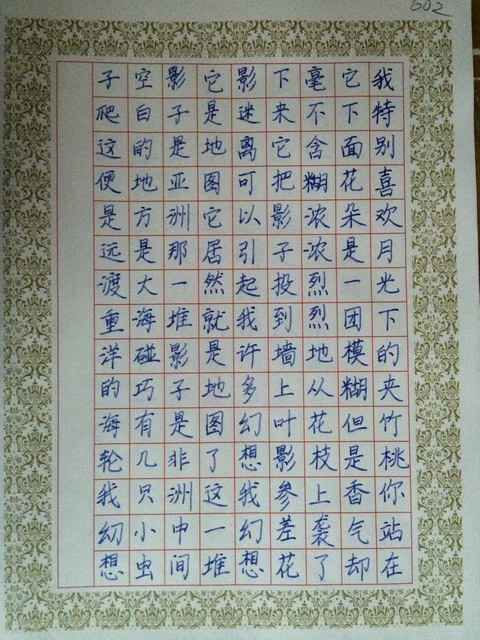 602
我特别喜欢月光下的夹竹桃你站在
它下面花朵是一团模糊但是香气却
毫不含糊浓浓烈烈地从花枝上袭了
下来它把影子投到墙上叶影参差花
影迷离可以引起我许多幻想我幻想
它是地图它居然就是地图了这一堆
影子是亚洲那一堆影子是非洲中间
空白的地方是大海碰巧有几只小虫
子爬这便是远渡重洋的海轮我幻想